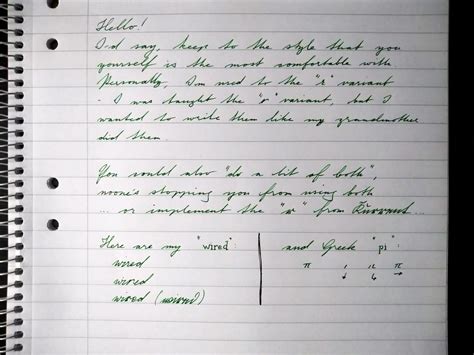 Hello!
I'd say, keep to the style that you
yourself is the most comfortable with.
Personally, I'm used to the "r" variant
- I was taught the "r" variant, but I
wanted to write them like my grandmother
did them.
You could also "do a bit of both",
noone's stopping you from using both
... or implement the "r" from Kurrent...
Here are my "wired":
wired
wired
wired (wired)
and Greek "pi":
π
π